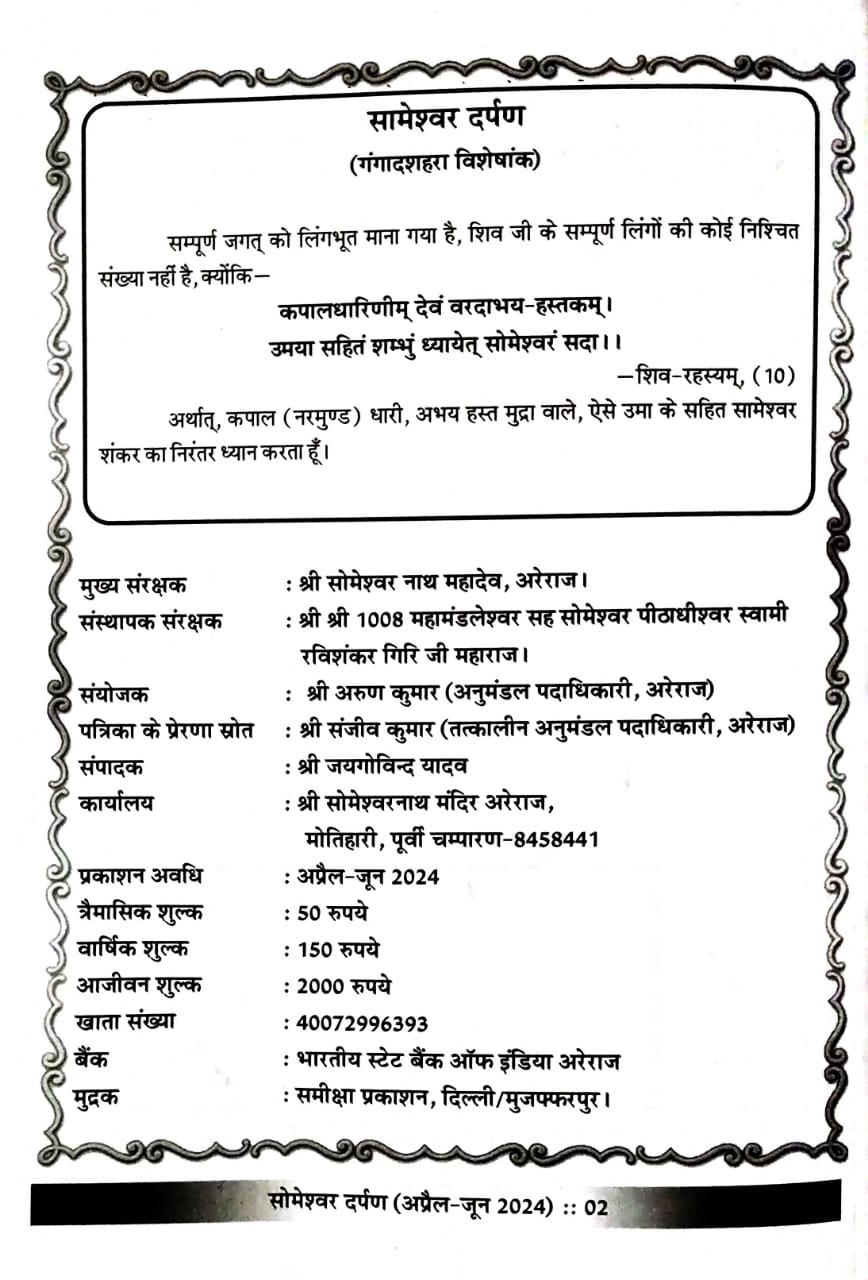 सामेश्वर दर्पण
(गंगादशहरा विशेषांक)
सम्पूर्ण जगत् को लिंगभूत माना गया है, शिव जी के सम्पूर्ण लिंगों की कोई निश्चित
संख्या नहीं है, क्योंकि–
कपालधारिणीम् देवं वरदाभय-हस्तकम्।
उमया सहितं शम्भुं ध्यायेत् सोमेश्वरं सदा।।
–शिव-रहस्यम्, (10)
अर्थात्, कपाल (नरमुण्ड) धारी, अभय हस्त मुद्रा वाले, ऐसे उमा के सहित सामेश्वर
शंकर का निरंतर ध्यान करता हूँ।
मुख्य संरक्षक : श्री सोमेश्वर नाथ महादेव, अरेराज।
संस्थापक संरक्षक : श्री श्री 1008 महामंडलेश्वर सह सोमेश्वर पीठाधीश्वर स्वामी
रविशंकर गिरि जी महाराज।
संयोजक : श्री अरुण कुमार (अनुमंडल पदाधिकारी, अरेराज)
पत्रिका के प्रेरणा स्रोत : श्री संजीव कुमार (तत्कालीन अनुमंडल पदाधिकारी, अरेराज)
संपादक : श्री जयगोविन्द यादव
कार्यालय : श्री सोमेश्वरनाथ मंदिर अरेराज,
मोतिहारी, पूर्वी चम्पारण-8458441
प्रकाशन अवधि : अप्रैल-जून 2024
त्रैमासिक शुल्क : 50 रुपये
वार्षिक शुल्क : 150 रुपये
आजीवन शुल्क : 2000 रुपये
खाता संख्या : 40072996393
बैंक : भारतीय स्टेट बैंक ऑफ इंडिया अरेराज
मुद्रक : समीक्षा प्रकाशन, दिल्ली/मुजफ्फरपुर।
सोमेश्वर दर्पण (अप्रैल-जून 2024) :: 02